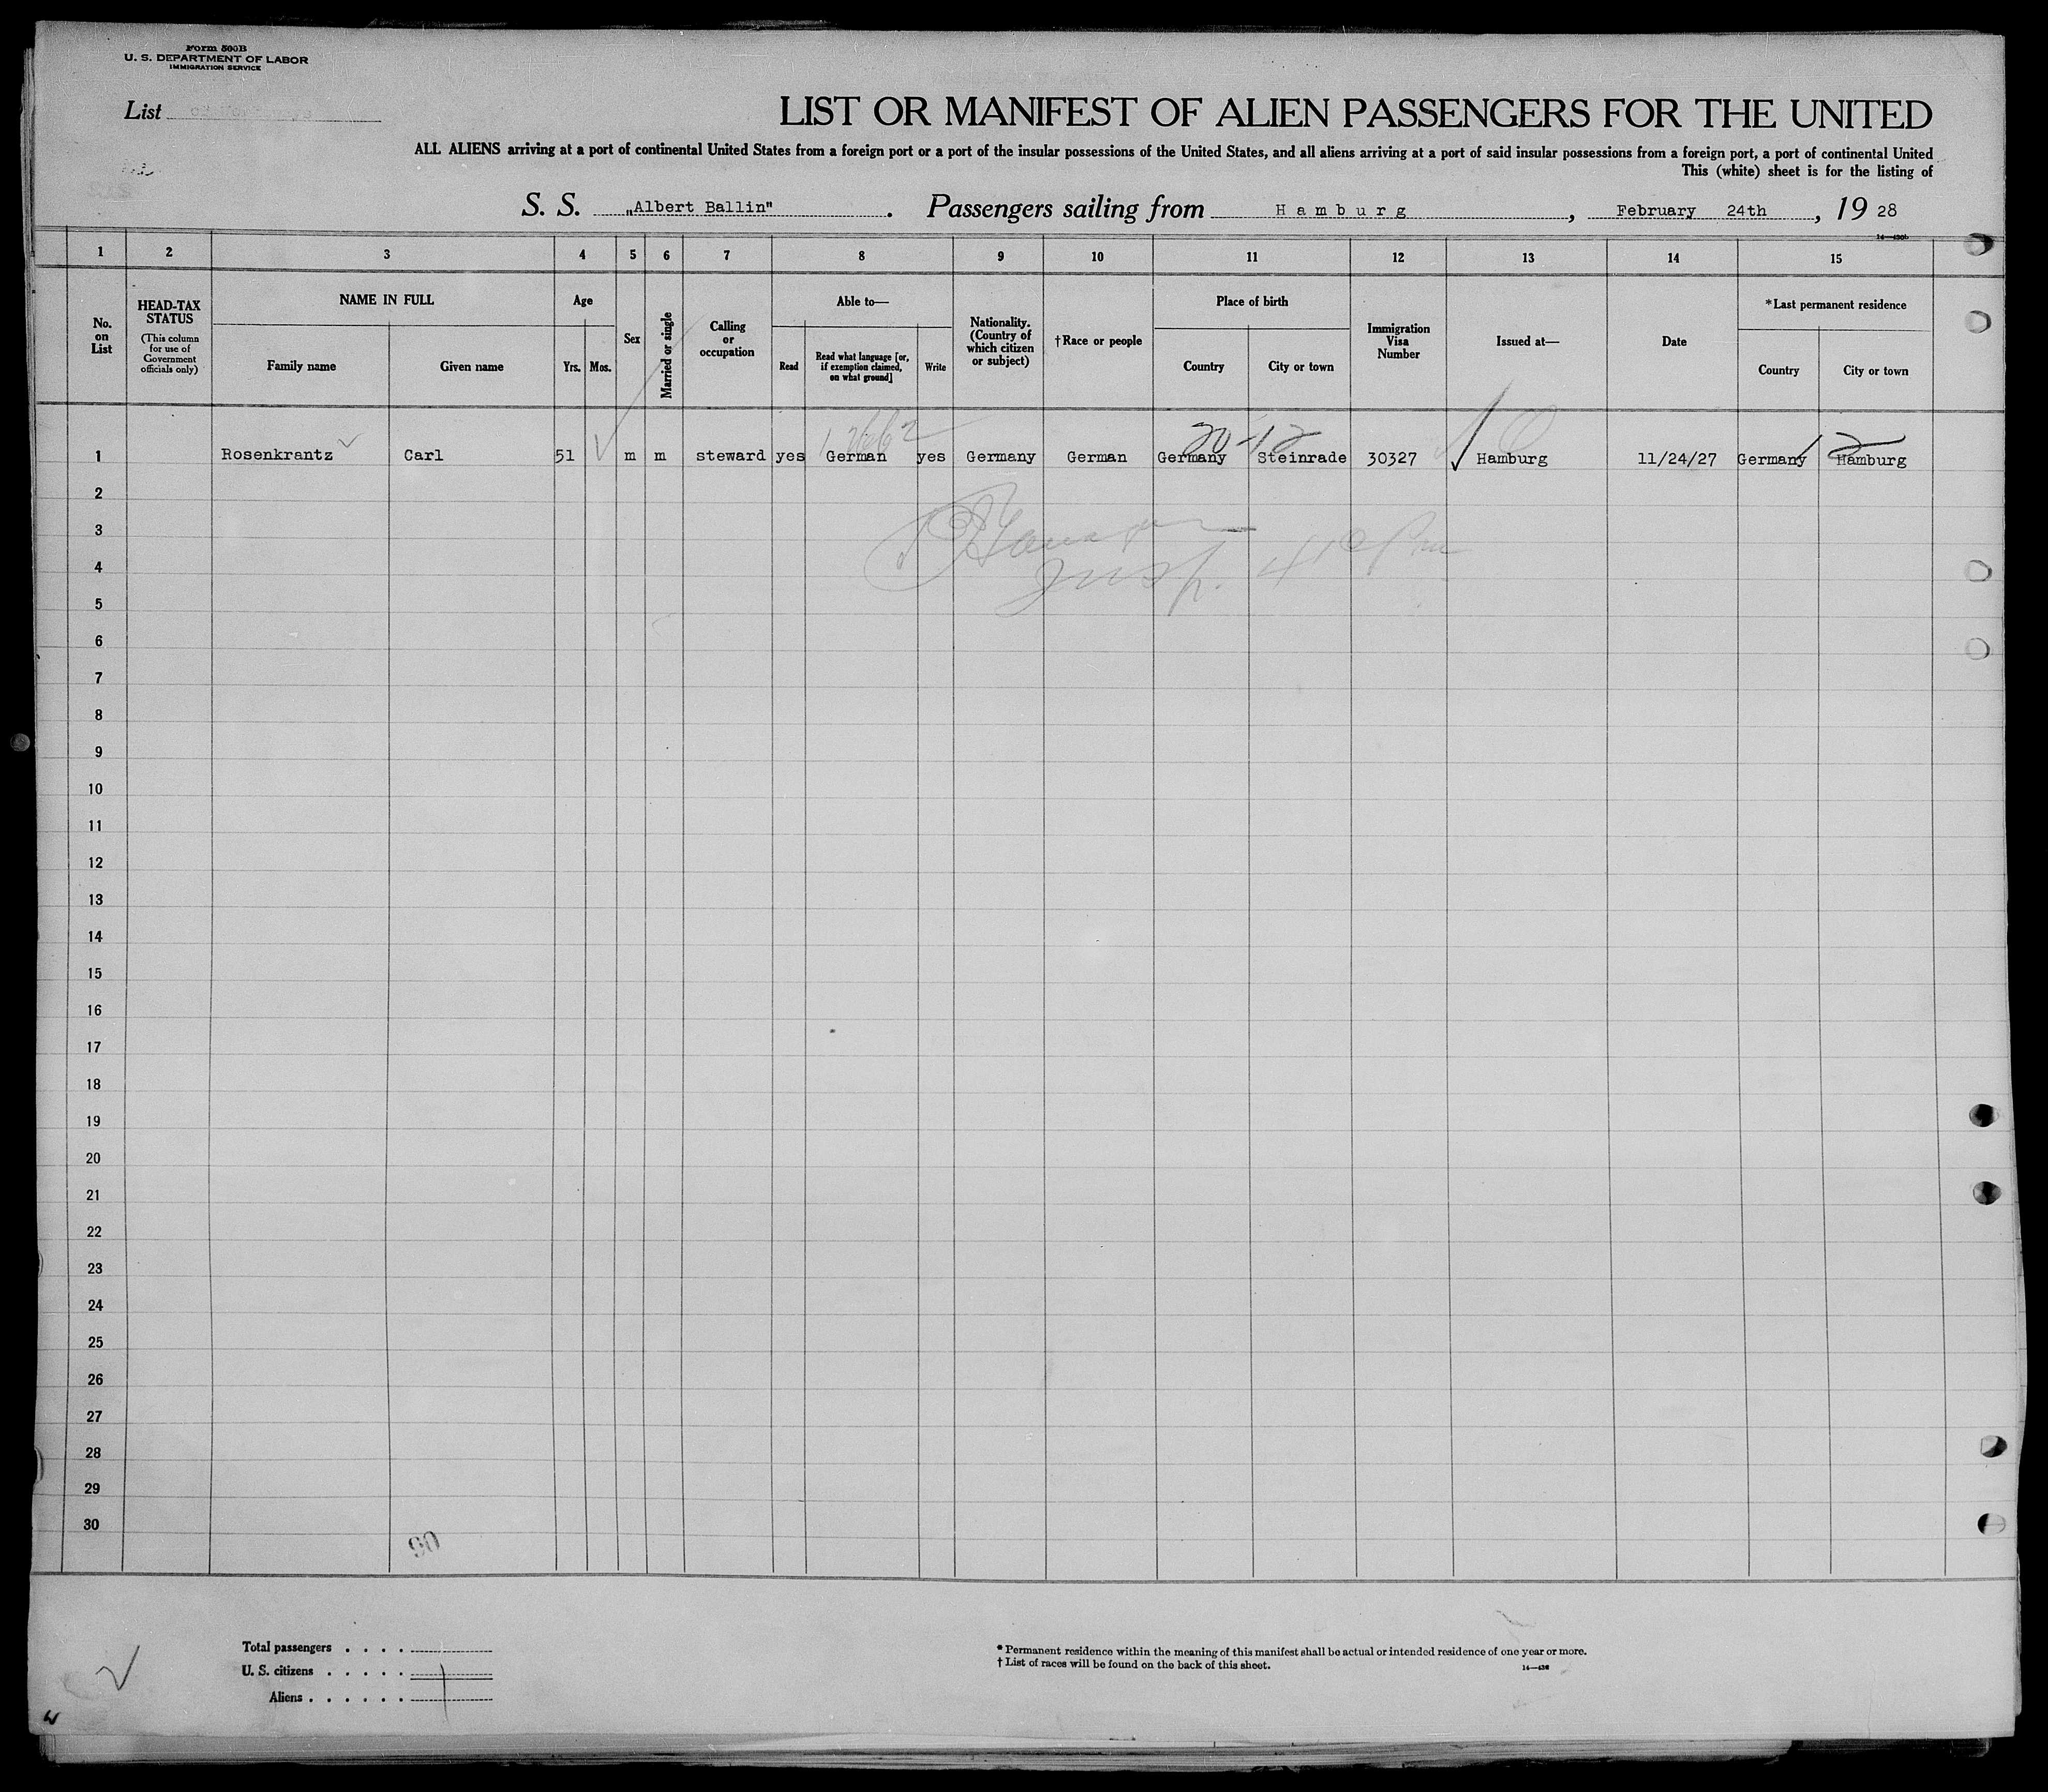 Form 500B
U. S. DEPARTMENT OF LABOR
IMMIGRATION SERVICE
List
LIST OR MANIFEST OF ALIEN PASSENGERS FOR THE UNITED
ALL ALIENS arriving at a port of continental United States from a foreign port or a port of the insular possessions of the United States, and all aliens arriving at a port of said insular possessions from a foreign port, a port of continental United
This (white) sheet is for the listing of
S. S. „Albert Ballin". Passengers sailing from Hamburg, February 24th, 19 28
14—430b
1 2 3 4 5 6 7 8 9 10 11 12 13 14 15
No. on List
HEAD-TAX STATUS
(This column for use of Government officials only)
NAME IN FULL
Family name
Given name
Age
Yrs.
Mos.
Sex
Married or single
Calling or occupation
Able to—
Read
Read what language [or, if exemption claimed, on what ground]
Write
Nationality. (Country of which citizen or subject)
†Race or people
Place of birth
Country
City or town
Immigration Visa Number
Issued at—
Date
*Last permanent residence
Country
City or town
20-12
12
1 Rosenkrantz Carl 51 m m steward yes German yes Germany German Germany Steinrade 30327 Hamburg 11/24/27 Germany Hamburg
2
3
4
Insp.
5
6
7
8
9
10
11
12
13
14
15
16
17
18
19
20
21
22
23
24
25
26
27
28
29
30
90
Total passengers . . . .
U. S. citizens . . . . .
Aliens . . . . . .
* Permanent residence within the meaning of this manifest shall be actual or intended residence of one year or more.
† List of races will be found on the back of this sheet.